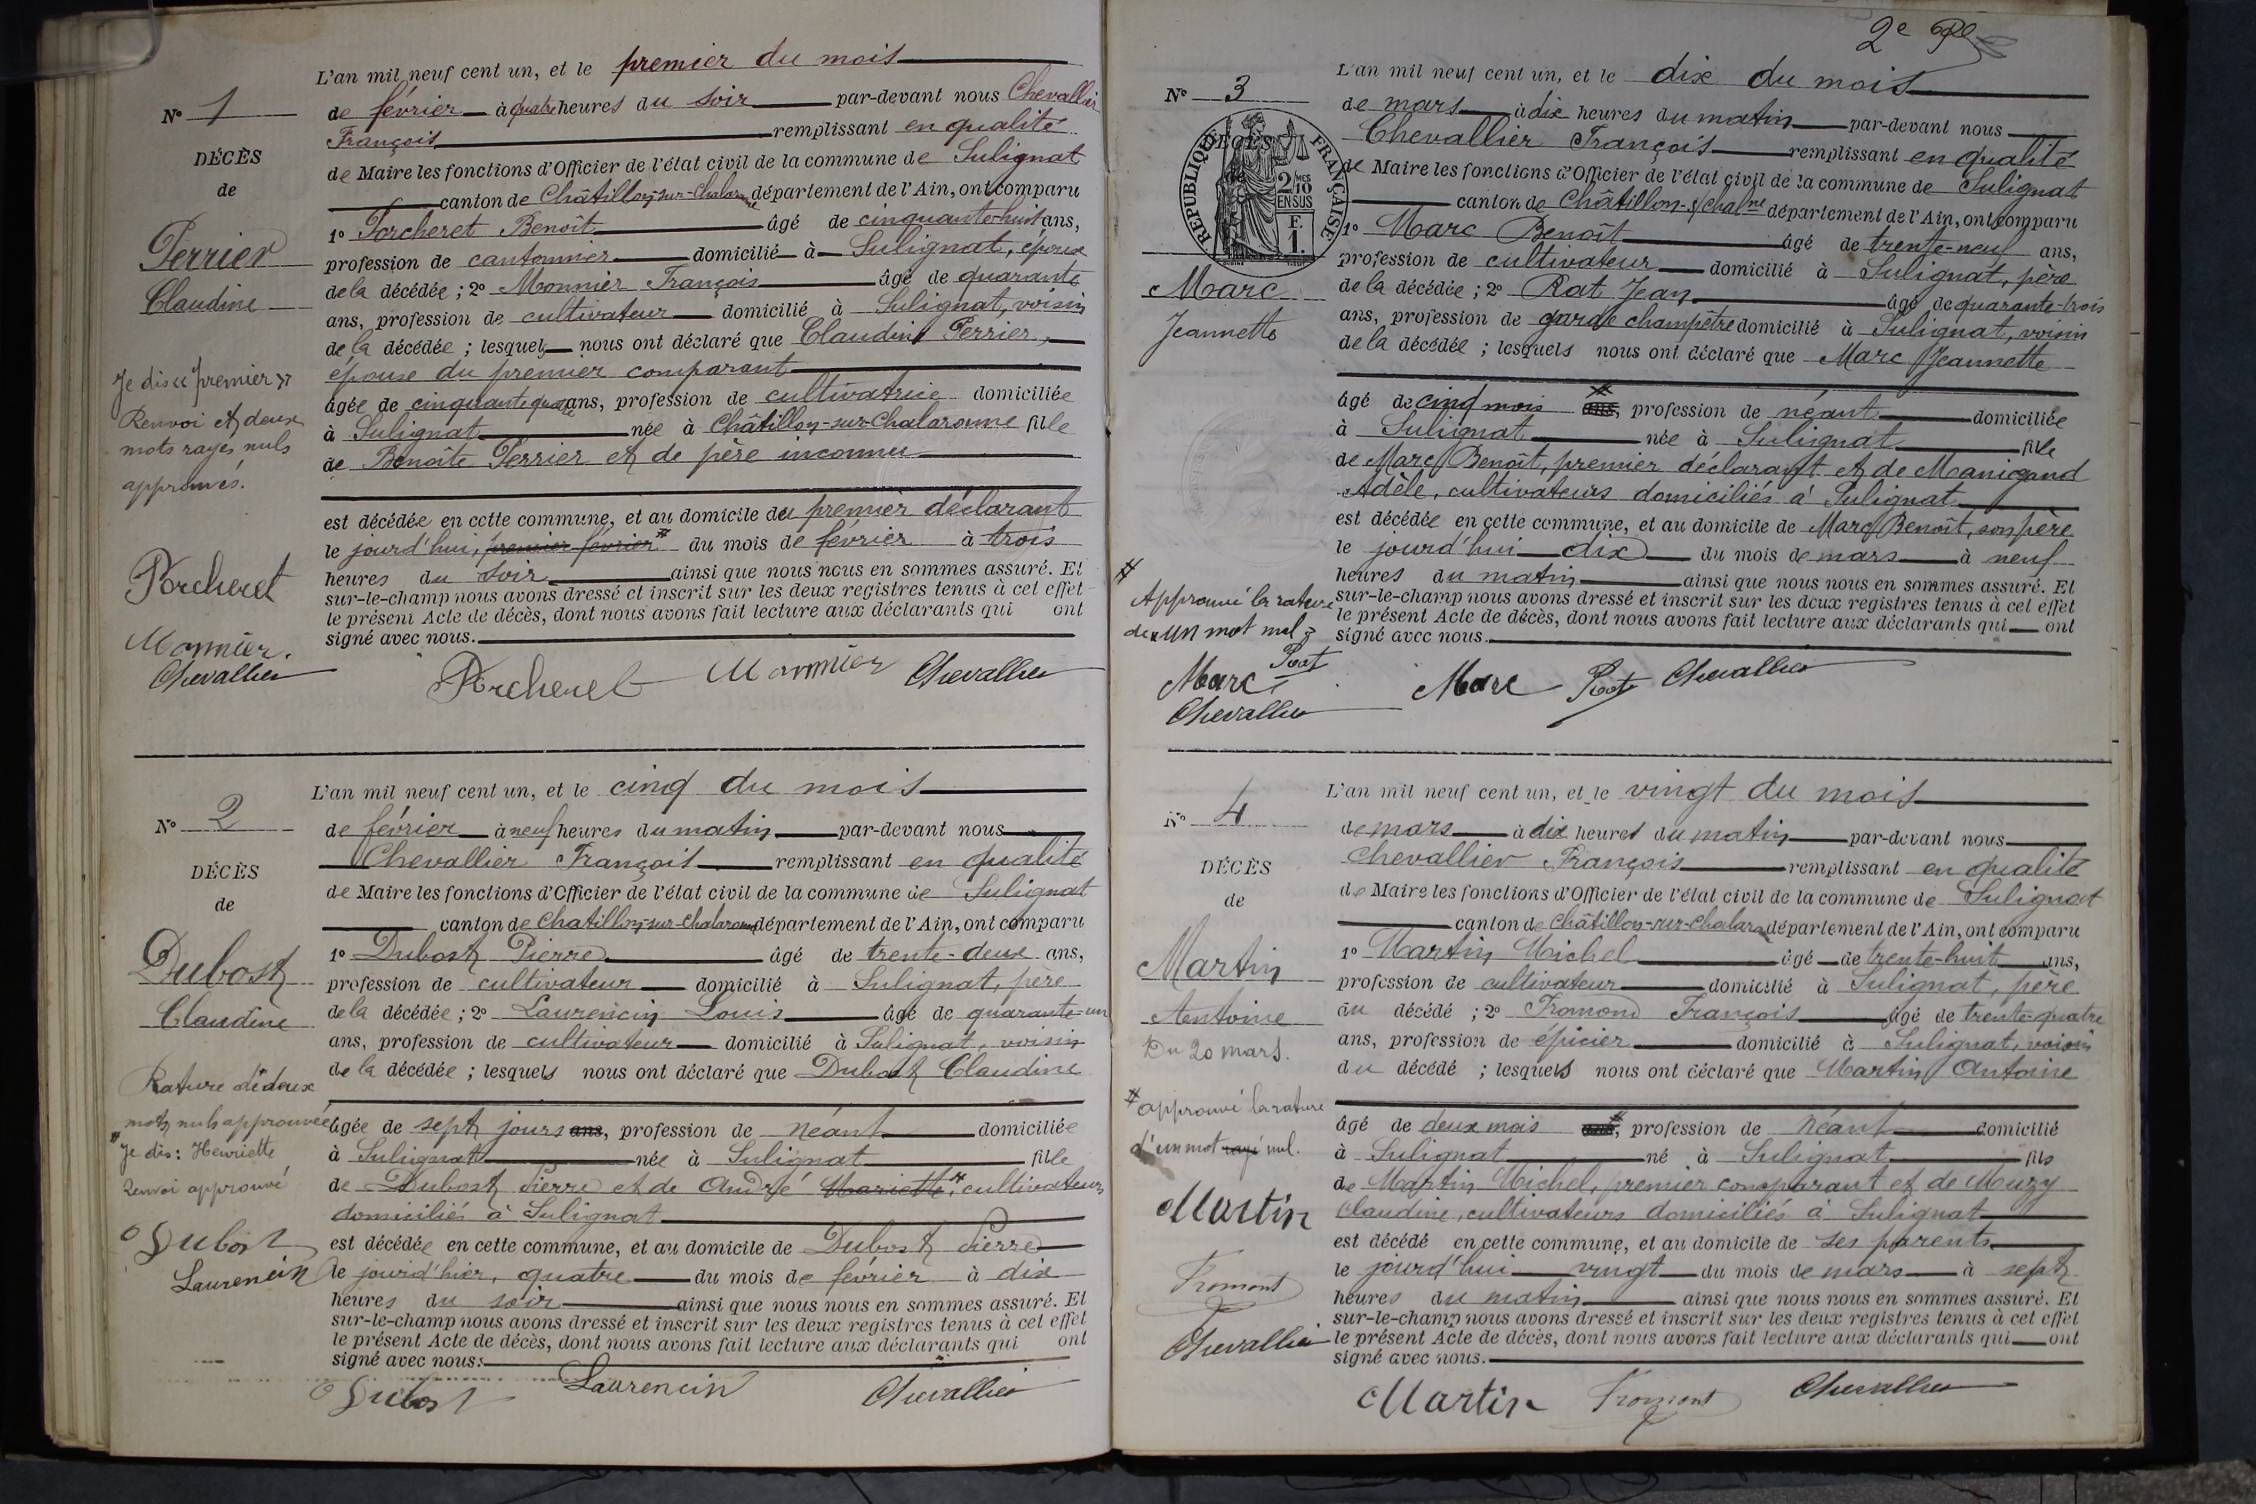 L'an mil neuf cent un, et le premier du mois
N° 1
de février à quatre heures du soir par-devant nous Chevallier
François remplissant en qualité
DÉCÈS
de Maire les fonctions d'Officier de l'état civil de la commune de Sulignat
de
canton de Châtillon-sur-Chalaronne département de l'Ain, ont comparu
Perrier
1° Porcheret Benoît âgé de cinquante-huit ans,
profession de cantonnier domicilié à Sulignat, époux
Claudine
de la décédée ; 2° Monnier François âgé de quarante
ans, profession de cultivateur domicilié à Sulignat, voisin
de la décédée ; lesquels nous ont déclaré que Claudine Perrier,
épouse du premier comparant
âgée de cinquante quatre ans, profession de cultivatrice domiciliée
à Sulignat née à Châtillon-sur-Chalaronne fille
de Benoîte Perrier et de père inconnu
est décédée en cette commune, et au domicile du premier déclarant
le jourd'hui, premier février # du mois de février à trois
heures du soir ainsi que nous nous en sommes assuré. Et
sur-le-champ nous avons dressé et inscrit sur les deux registres tenus à cet effet
le présent Acte de décès, dont nous avons fait lecture aux déclarants qui ont
signé avec nous.
Je dis « premier »
Renvoi et deux
mots rayés nuls
approuvés.
Porcheret
Monnier.
Chevallier
Porcheret Monnier Chevallier
L'an mil neuf cent un, et le cinq du mois
N° 2
de février à neuf heures du matin par-devant nous
Chevallier François remplissant en qualité
DÉCÈS
de Maire les fonctions d'Officier de l'état civil de la commune de Sulignat
de
canton de Chatillon-sur-Chalaronne département de l'Ain, ont comparu
Dubost
1° Dubost Pierre âgé de trente-deux ans,
profession de cultivateur domicilié à Sulignat, père
Claudine
de la décédée ; 2° Laurencin Louis âgé de quarante-un
ans, profession de cultivateur domicilié à Sulignat, voisin
de la décédée ; lesquels nous ont déclaré que Dubost Claudine
âgée de sept jours ans, profession de néant domiciliée
à Sulignat née à Sulignat fille
de Dubost Pierre et de André Mariette #, cultivateurs
domiciliés à Sulignat
est décédée en cette commune, et au domicile de Dubost Pierre
le jourd'hier, quatre du mois de février à dix
heures du soir ainsi que nous nous en sommes assuré. Et
sur-le-champ nous avons dressé et inscrit sur les deux registres tenus à cet effet
le présent Acte de décès, dont nous avons fait lecture aux déclarants qui ont
signé avec nous.
Rature de deux
mots nuls approuvée
# Je dis : Henriette
Renvoi approuvé
Dubost
Laurencin
Dubost Laurencin Chevallier
2e
L'an mil neuf cent un, et le dix du mois
N° 3
de mars à dix heures du matin par-devant nous
Chevallier François remplissant en qualité
DÉCÈS
RÉPUBLIQUE FRANÇAISE
2 MES 10 EN SUS
F. 1.
de Maire les fonctions d'Officier de l'état civil de la commune de Sulignat
canton de Châtillon-s/Chalne département de l'Ain, ont comparu
1° Marc Benoît âgé de trente-neuf ans,
profession de cultivateur domicilié à Sulignat, père
Marc
de la décédée ; 2° Rat Jean âgé de quarante-trois
Jeannette
ans, profession de garde champêtre domicilié à Sulignat, voisin
de la décédée ; lesquels nous ont déclaré que Marc Jeannette
âgé de cinq mois # ans, profession de néant domiciliée
à Sulignat née à Sulignat fille
de Marc Benoît, premier déclarant et de Manigand
Adèle, cultivateurs domiciliés à Sulignat
est décédée en cette commune, et au domicile de Marc Benoît, son père
le jourd'hui dix du mois de mars à neuf
heures du matin ainsi que nous nous en sommes assuré. Et
sur-le-champ nous avons dressé et inscrit sur les deux registres tenus à cet effet
le présent Acte de décès, dont nous avons fait lecture aux déclarants qui ont
signé avec nous.
#
Approuvé la rature
de « un mot nul »
Rat
Marc
Chevallier
Marc Rat Chevallier
L'an mil neuf cent un, et le vingt du mois
N° 4
de mars à dix heures du matin par-devant nous
Chevallier François remplissant en qualité
DÉCÈS
de Maire les fonctions d'Officier de l'état civil de la commune de Sulignat
de
canton de Châtillon-sur-Chalara département de l'Ain, ont comparu
Martin
1° Martin Michel âgé de trente-huit ans,
profession de cultivateur domicilié à Sulignat, père
Antoine
du décédé ; 2° Fromond François âgé de trente-quatre
Du 20 mars.
ans, profession de épicier domicilié à Sulignat, voisin
du décédé ; lesquels nous ont déclaré que Martin Antoine
âgé de deux mois # ans, profession de néant domicilié
à Sulignat né à Sulignat fils
de Martin Michel, premier comparant et de Muzy
Claudine, cultivateurs domiciliés à Sulignat
est décédé en cette commune, et au domicile de ses parents
le jourd'hui vingt du mois de mars à sept
heures du matin ainsi que nous nous en sommes assuré. Et
sur-le-champ nous avons dressé et inscrit sur les deux registres tenus à cet effet
le présent Acte de décès, dont nous avons fait lecture aux déclarants qui ont
signé avec nous.
# approuvé la rature
d'un mot rayé nul.
Martin
Fromont
Chevallier
Martin Fromont Chevallier